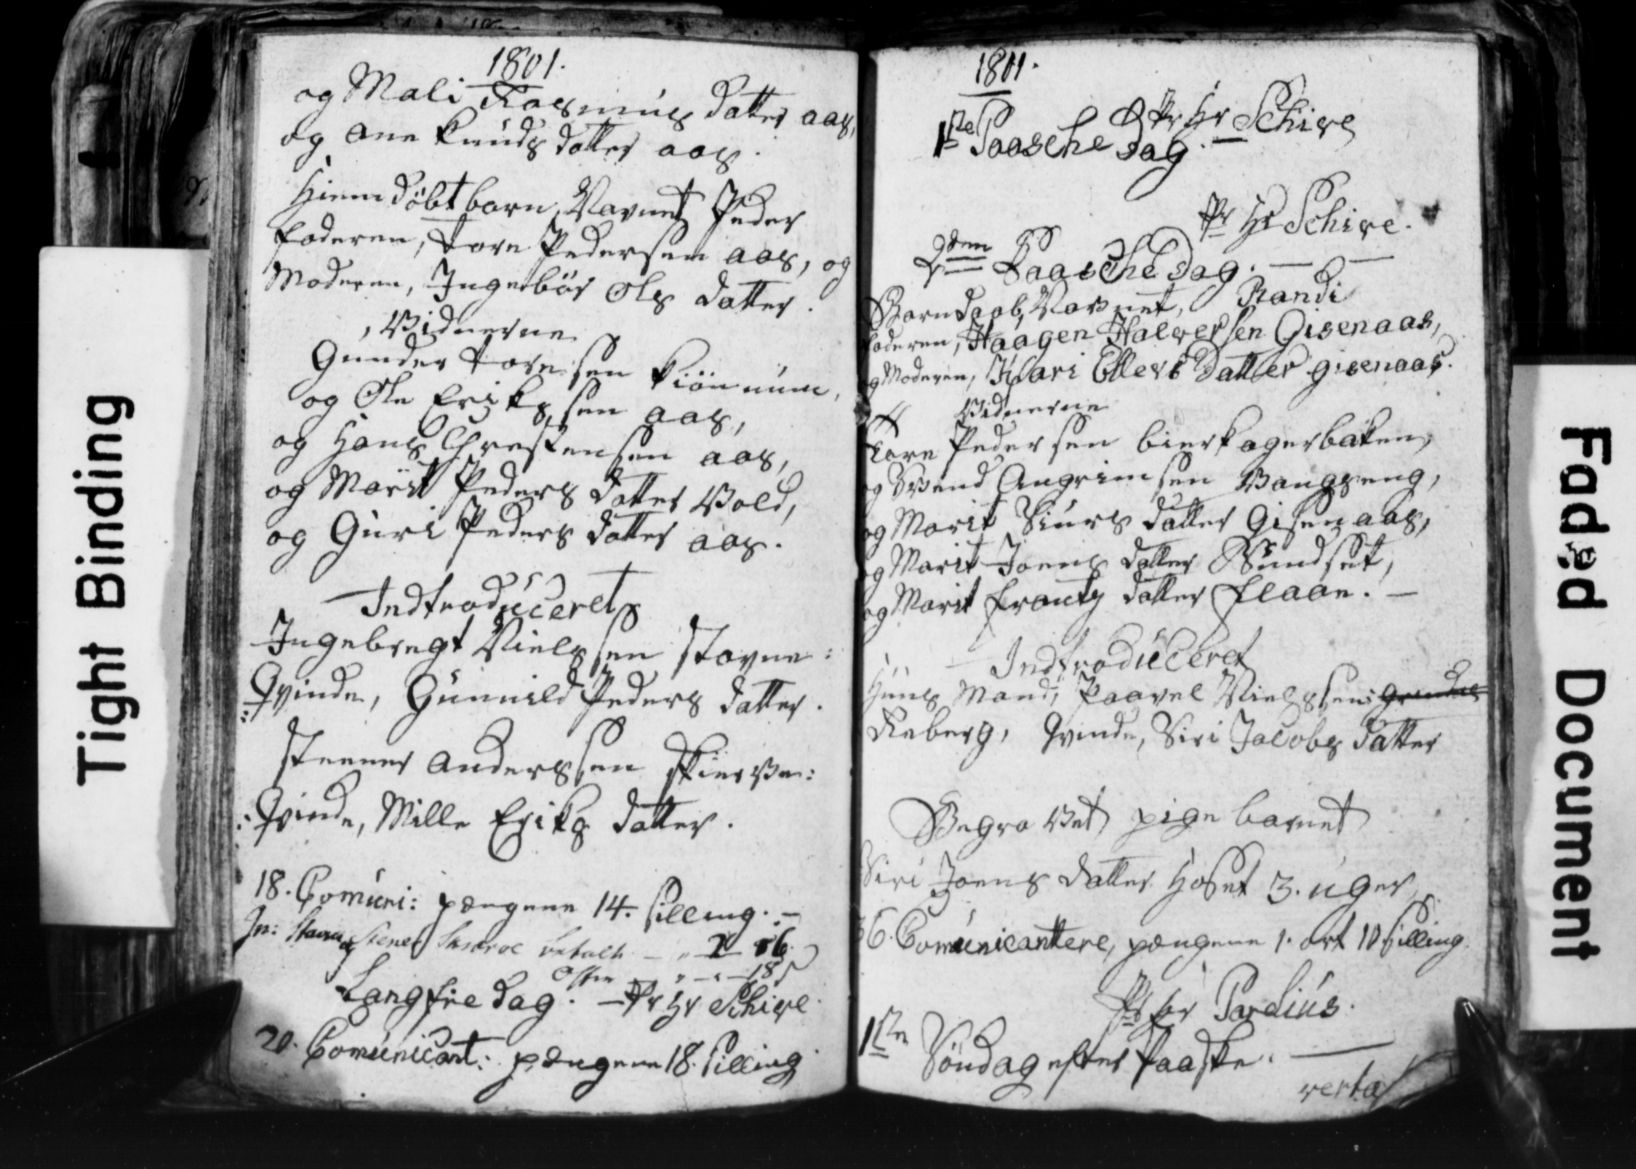 Tight Binding
1801.
og Mali Rasmus datter aas,
og ane knuds datter aas.
Hiemdöbt barn, Navnet Peder
faderen, Tore Pedersen aas, og
Moderen, Ingebör Ols datter.
, Vidnerne
Gunder Tore sen kiönnum,
og Ole Eriks sen aas,
og Hans Chrestensen aas,
og Marit Peders datter Vold,
og Guri Peders datter aas.
Indtroduceret
Ingebregt Niels sen stavne:
Qvinde, Gunnild Peders datter.
steener anders sen skierve:
Qvinde, Mille Eriks datter.
18. Comuni: pengene 14. silling. –
betalt
Offer 18 s
Langfredag. – Pr Hr Schive
20. Comunicant: pengene 18. silling
1801.
Pr Hr Schive
1ste Paasche Dag.
Pr Hr Schive.
2den Paasche Dag. — —
Barndaab, Navnet, Randi
faderen, Haagen Halversen Gisenaas,
og Moderen, Kari Ellevs Datter gisenaas.
Vidnerne
Tore Peder sen bierkagerbaken,
og Svend Angrimsen Vangseng,
og Marit Siurs datter Gisenaas,
og Marit Joens datter Sundset,
og Marit frants datter flaan. —
Indtroduceret
Huus Mand, Paavel Nielssen
Raberg, Qvinde, Siri Jacobs datter
Begravet pige barnet
Siri Joens datter Hoset 3. uger
36. Comunicantere, pengene 1. ort 10 silling
Pr Hr Pardius.
1ste Söndag efter Paaske. —
verta
Faded Document